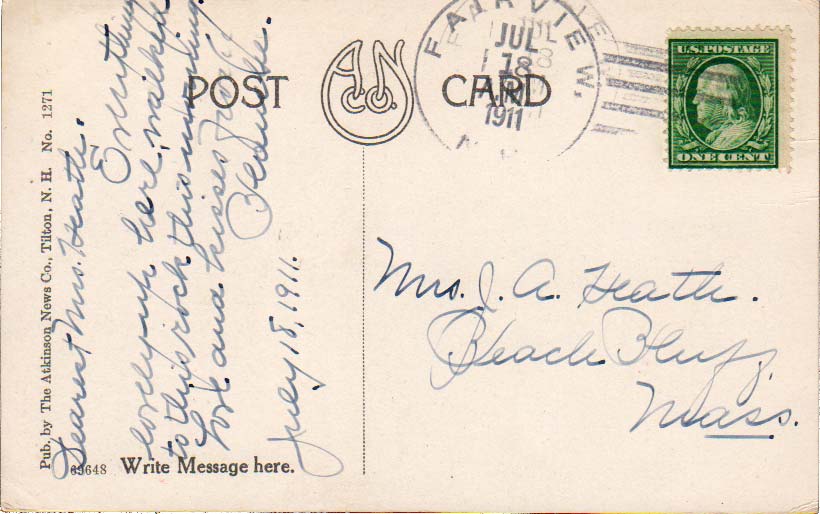 POST CARD
A.N. Co.
FAIRVIEW.
JUL
18
1911
U.S. POSTAGE
ONE CENT
Pub. by The Atkinson News Co., Tilton, N. H. No. 1271
Dearest Mrs. Heath.
Everything
lovely up here, walked
to this rock this morning.
Love and kisses
July 18, 1911.
Mrs. J. A. Heath.
Beach Bluff
Mass.
69648 Write Message here.